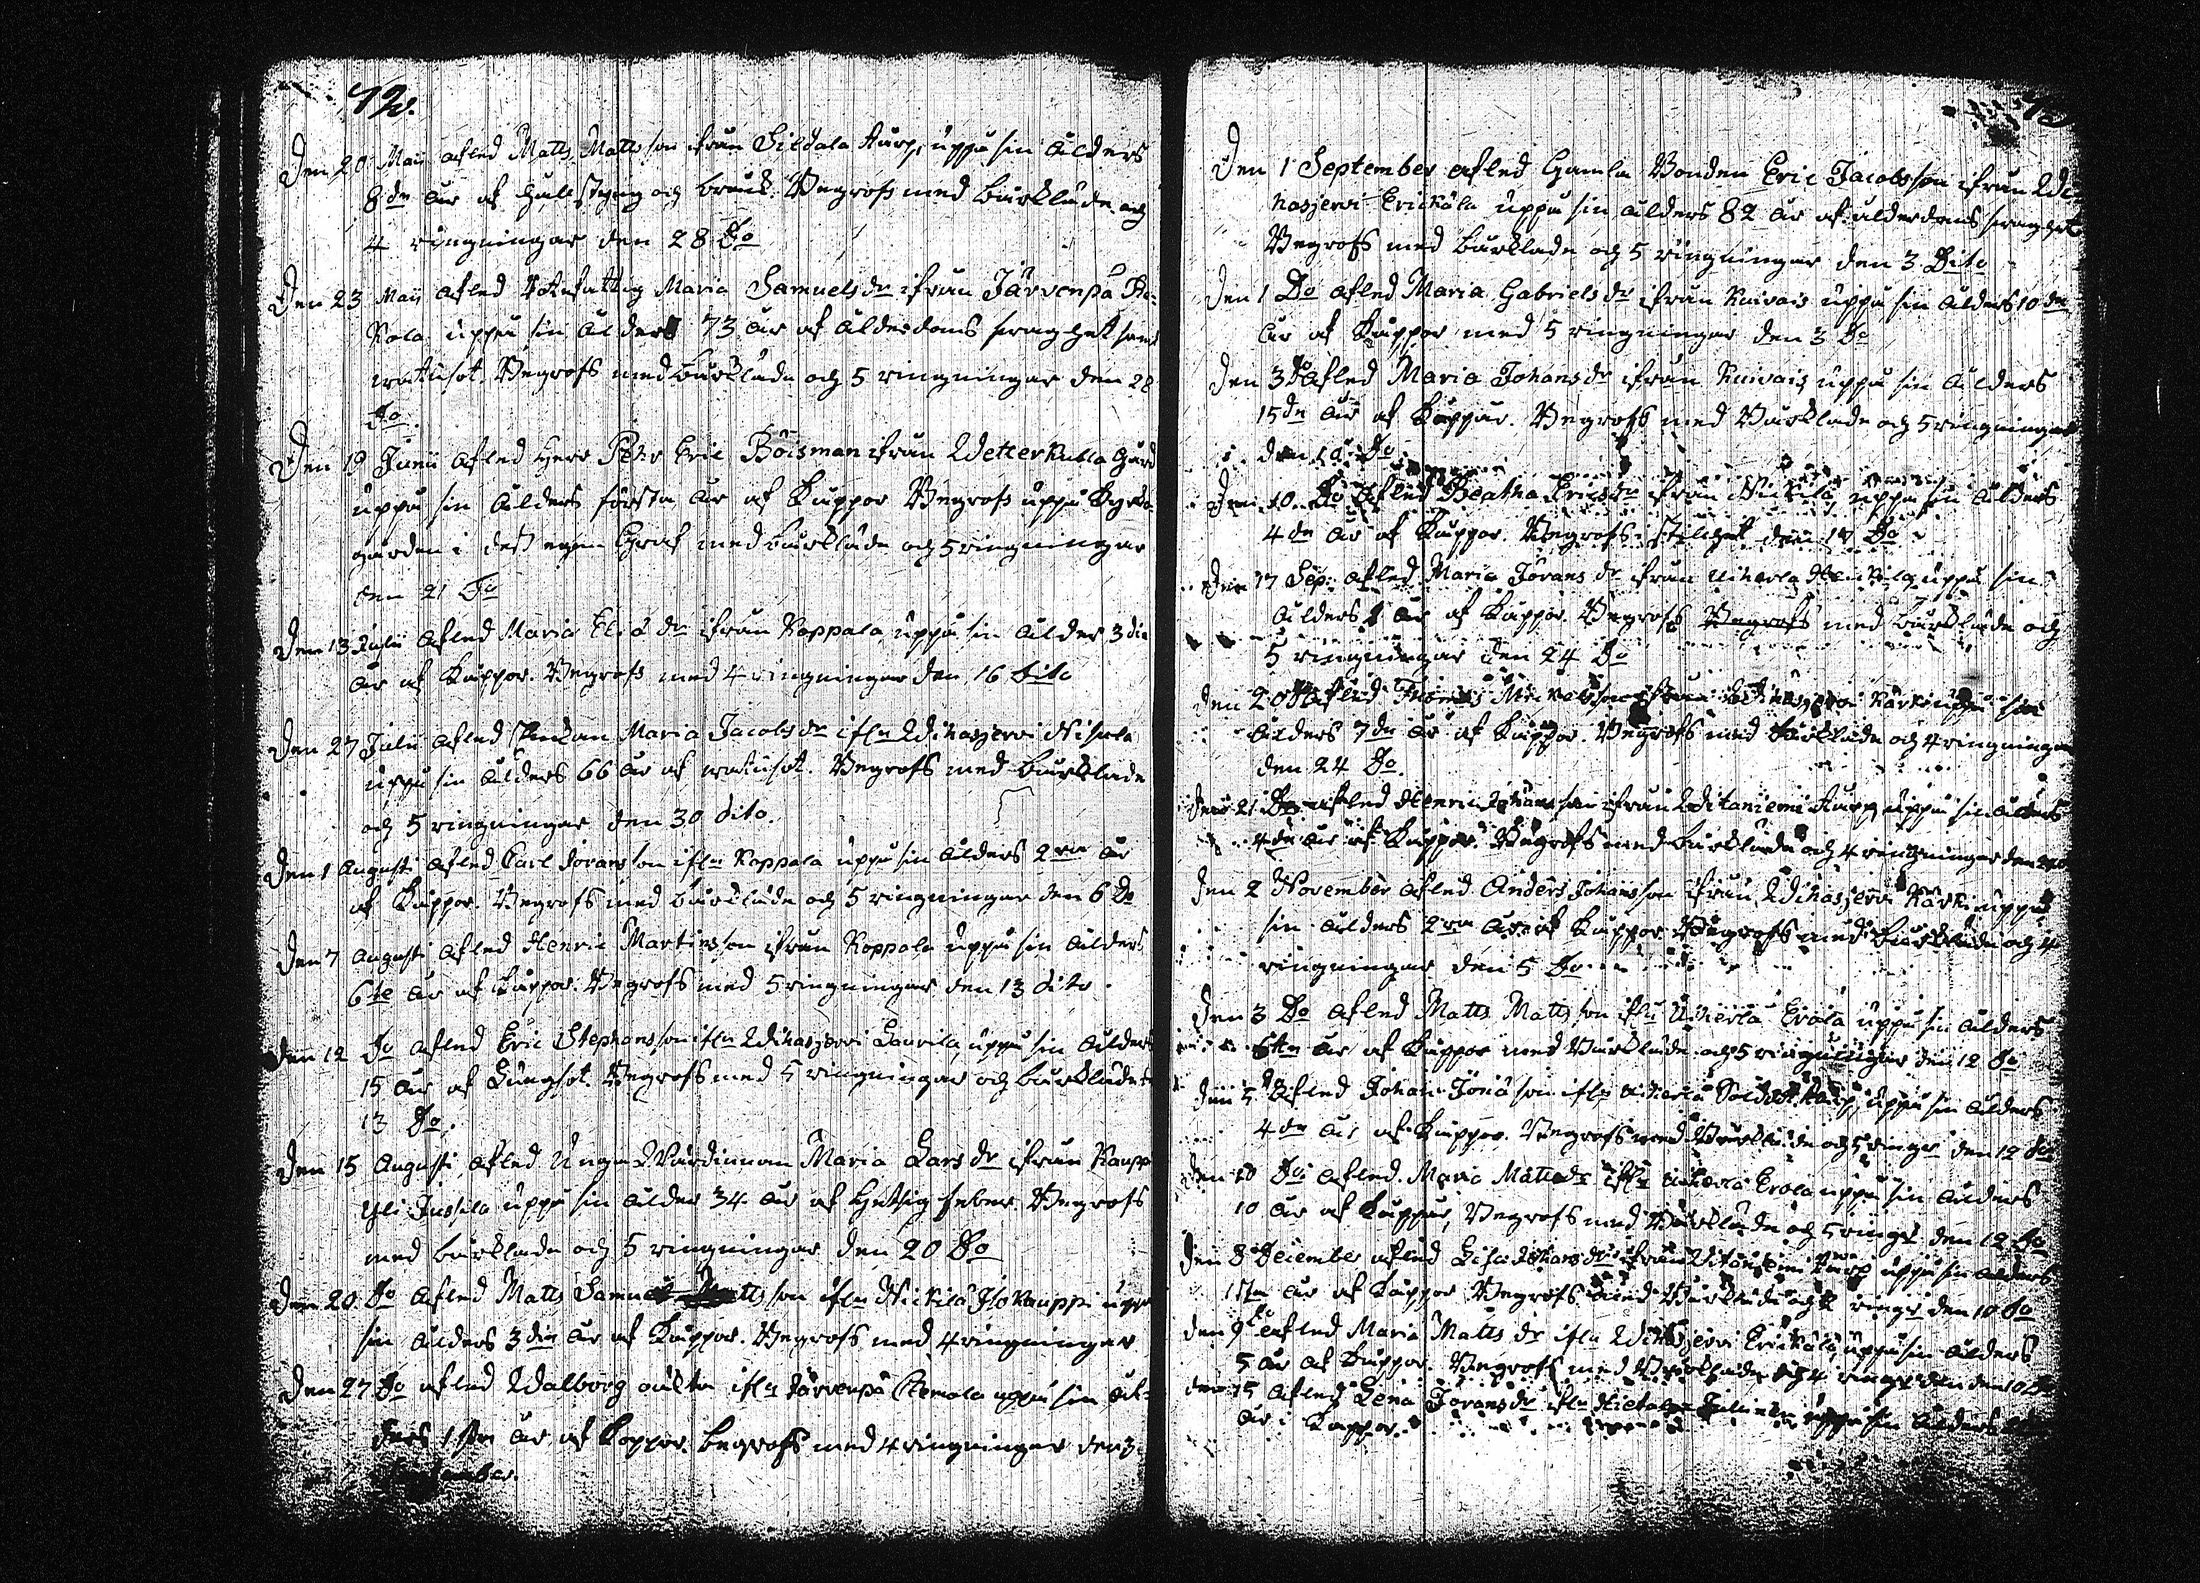 72.
Den 20 Maij afled Matts Mattsson ifrån Sildala Torp, uppå sin ålders
8de år af Håll och Styng och bräck. Begrofs med Bårkläde och
4 ringningar den 28 Do
Den 23 Maij afled Rotefattig Maria Samuels dr ifrån Järvenpä
kola uppå sin ålders 73 år af ålderdoms svaghet samt
wattusot. Begrofs med bårkläde och 5 ringningar den 28
Do.
Den 19 Junii afled Herr Pehr Eric Boisman ifrån Wetterkulla Gård
uppå sin ålders första år af Kåppor Begrofs uppå Kyrko
gården i dess egen Graf med bårkläde och 5 ringningar
den 21 Do
Den 13 Julii afled Maria Eliæ dr ifrån Koppala uppå sin ålder 3die
år af Kåppor. Begrofs med 4 ringningar den 16 Dito
Den 27 Julii afled Enkan Maria Jacobs dr ifrn Widikasjervi Nisula
uppå sin ålders 66 år af wattusot. Begrofs med bårkläde
och 5 ringningar den 30 dito.
Den 1 Augusti afled Carl Jöransson ifrn Koppala uppå sin ålders 2ra år
af Kåppor. Begrofs med bårkläde och 5 ringningar den 6 Do
Den 7 Augusti afled Henric Martinsson ifrån Koppala uppå sin ålders
6te år af Kåppor. Begrofs med 5 ringningar den 13 dito.
Den 12 Do afled Eric Stephansson ifrn Widikasjervi Laurila, uppå sin ålders
15 år af Lungsot. Begrofs med 5 ringningar och bårkläde
13 Do.
Den 15 Augusti afled Unga Wärdinnan Maria Lars dr ifrån Kaupp
Yli Jussila uppå sin ålder 34 år af Hetsig feber. Begrofs
med bårkläde och 5 ringningar den 20 Do
Den 20 Do afled Matts Mattsson ifrn Nickilä Iso Kauppi uppå
sin ålders 3die år af Kåppor. Begrofs med 4 ringningar
Den 27 Do afled Walborg oäkta ifrn Järvenpä uppå sin ål-
ders 1sta år af Koppor begrofs med 4 ringningar den 3
September.
73
Den 1 September afled Gamla Bonden Eric Jacobsson ifrån Widi
kasjervi Erickälä uppå sin ålders 82 år af ålderdoms svaghet
Begrofs med bårkläde och 5 ringningar den 3 Dito
Den 1 Do afled Maria Gabriels dr ifrån Kuivais uppå sin ålders 10de
år af Kåppor med 5 ringningar den 3 Do
Den 3 Do afled Maria Johans dr ifrån Kuivais uppå sin ålders
15de år af Kåppor. Begrofs med Bårkläde och 5 ringningar
den 10 Do.
Den 10 Do afled Beatha Erics dr ifrån Nickilä uppå sin ålders
4de år af Kåppor. Begrofs i stillhet den 17 Do
Den 17 Sep. afled Maria Jörans dr ifrån Uiherla uppå sin
ålders 1 år af Kåppor. Begrofs Begrofs med bårkläde och
5 ringningar den 24 Do
Den 20 Do afled Thomas Michelsson ifrån Widikasjervi Kärki uppå sin
ålders 7de år af Kåppor. Begrofs med bårkläde och 4 ringningar
den 24 Do.
Den 21 Do afled Henric Johansson ifrån Witaniemi Torp, uppå sin ålders
4de år af Kåppor. Begrofs med bårkläde och 4 ringningar den
Den 2 November afled Anders Johansson ifrån Widikasjervi Kärki uppå
sin ålders 2ra år af Kåppor. Begrofs med bårkläde och 4
ringningar den 5 Do.
Den 3 Do afled Matts Mattsson ifrn Uiherla Erola uppå sin ålders
år af Kåppor med Bårkläde och 5 ringningar den 12 Do
Den 5 Do afled Johan Jönasson ifrn Uiherla Soldat Torp, uppå sin ålders
4de år af Kåppor. Begrofs med Bårkläde och 5 ringr den 12 Do
Den 10 Do afled Maria Matts dr ifrn Uiherla Erola uppå sin ålders
10 år af Kåppor, Begrofs med Bårkläde och 5 ringr den 12 Do
Den 8 December afled Lisa Johans dr ifrån Witaniemi Torp uppå sin ålders
år af Kåppor Begrofs med Bårkläde och ringr den 10 Do
Den 9 Do afled Maria Matts dr ifrn Widikasjervi Erickälä, uppå sin ålders
5 år af Kåppor. Begrofs med Bårkläde och 4 ringr den den 10 Do
Den 15 afled Lena Jörans dr ifrn uppå sin ålders
år i Kåppor.